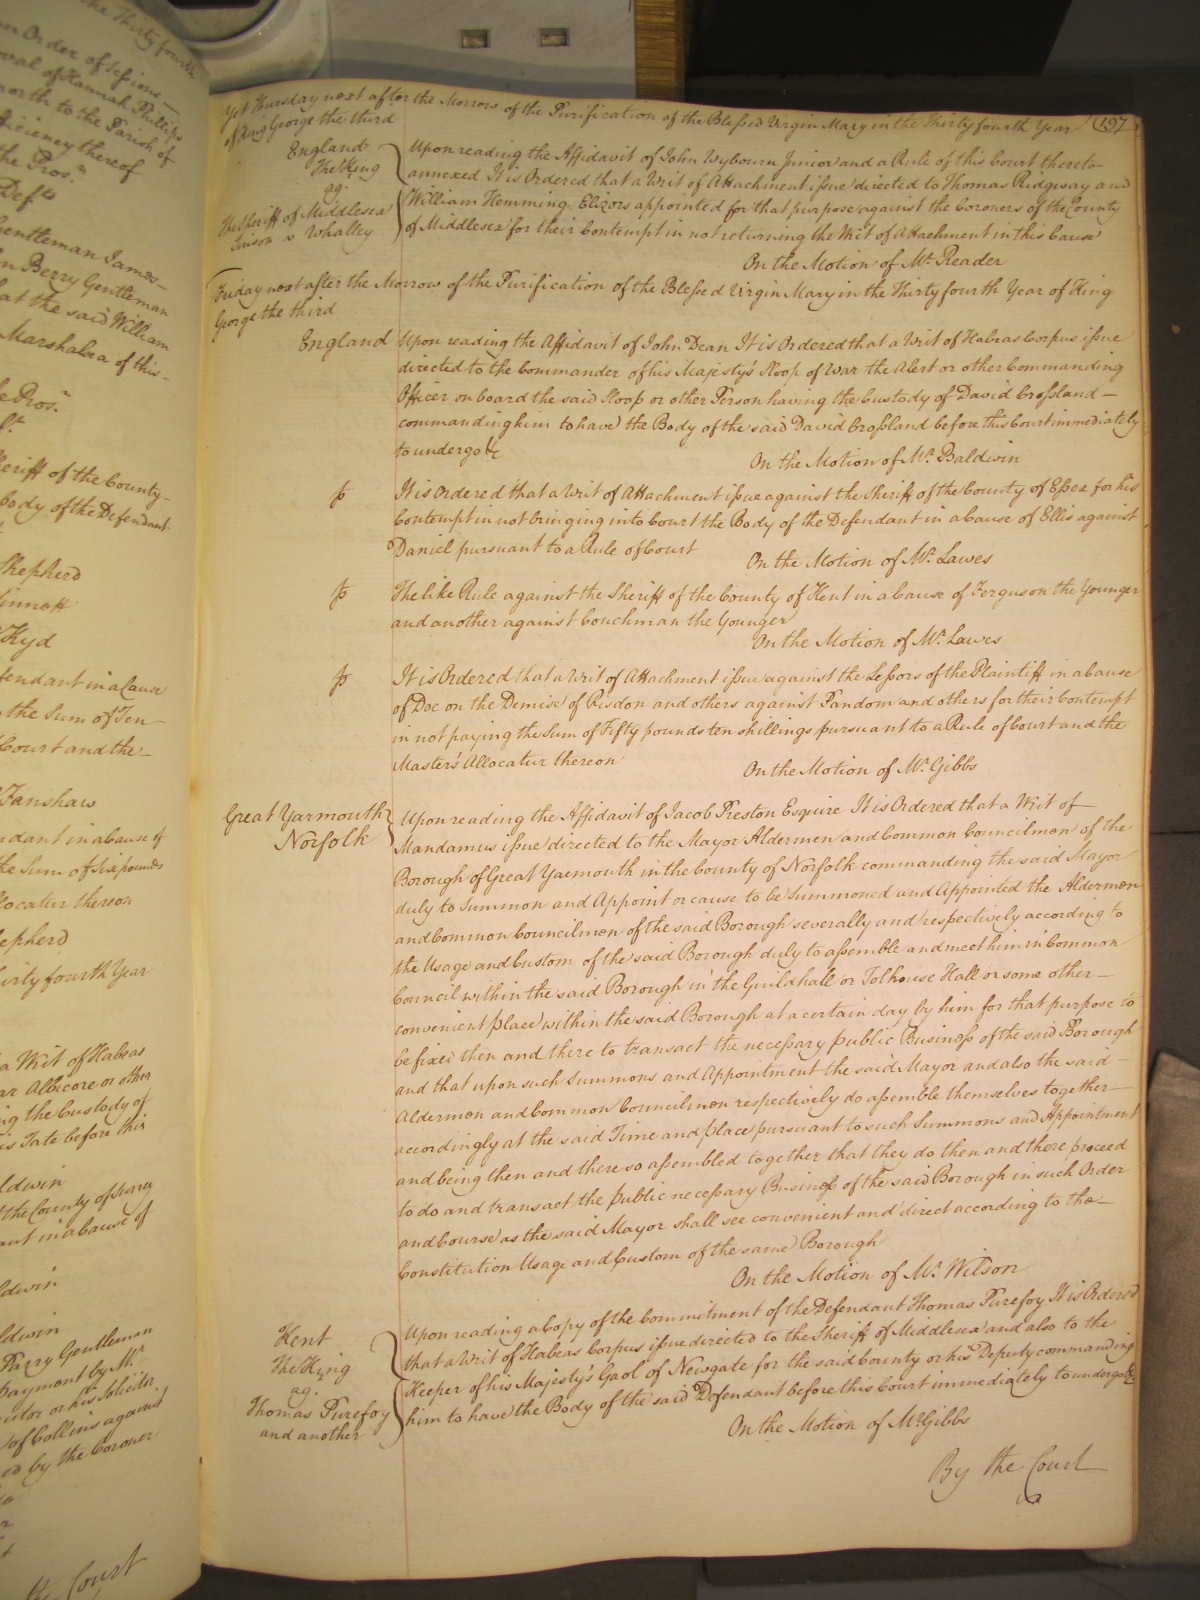 the Thirty fourth
an Order of Sessions
oval of Hannah Phillips
north to the Parish of
ficiency thereof
the Pros.r
Defts
Gentleman James
on Berry Gentleman
hat the said William
Marshalsea of this
Pros.r
heriff of the County
Body of the Defendant
Shepherd
Kyd
fendant in a Cause
the Sum of Ten
Court and the
Fanshaw
ndant in a Cause of
the Sum of Six pounds
locatur thereon
epherd
hirty fourth Year
a Writ of Habeas
ar Albicore or other
ng the Custody of
is Tate before this
ldwin
the County of Surrey
ant in a Cause of
ldwin
ldwin
Parry Gentleman
payment by Mr
citor or his Sollicitr
of Collins against
ed by the Coroner
the Court
Yet Thursday next after the Morrow of the Purification of the Blessed Virgin Mary in the Thirty fourth Year 197
of King George the third
England
The King
ag:
The Sheriff of Middlesex
v Whalley
Upon reading the Affidavit of John Wybourn Junior and a Rule of this Court thereto
annexed It is Ordered that a Writ of Attachment issue directed to Thomas Ridgway and
William Hemming Elizors appointed for that purpose against the Coroners of the County
of Middlesex for their Contempt in not returning the Writ of Attachment in this Cause
On the Motion of Mr. Reader
Friday next after the Morrow of the Purification of the Blessed Virgin Mary in the Thirty fourth Year of King
George the third
England
Upon reading the Affidavit of John Dean It is Ordered that a Writ of Habeas Corpus issue
directed to the Commander of his Majesty's Sloop of War the Alert or other Commanding
Officer on board the said Sloop or other Person having the Custody of David Crossland
commanding him to have the Body of the said David Crossland before this Court immediately
to undergo &c
On the Motion of Mr. Baldwin
It is Ordered that a Writ of Attachment issue against the Sheriff of the County of Essex for his
Contempt in not bringing into Court the Body of the Defendant in a Cause of Ellis against
Daniel pursuant to a Rule of Court
On the Motion of Mr. Lawes
The like Rule against the Sheriff of the County of Kent in a Cause of Ferguson the Younger
and another against Couchman the Younger
On the Motion of Mr. Lawes
It is Ordered that a Writ of Attachment issue against the Lessors of the Plaintiff in a Cause
of Doe on the Demise of Risdon and others against Fandom and others for their Contempt
in not paying the Sum of Fifty pounds ten shillings pursuant to a Rule of Court and the
Master's Allocatur thereon
On the Motion of Mr. Gibbs
Great Yarmouth
Norfolk
Upon reading the Affidavit of Jacob Preston Esquire It is Ordered that a Writ of
Mandamus issue directed to the Mayor Aldermen and Common Councilmen of the
Borough of Great Yarmouth in the County of Norfolk commanding the said Mayor
duly to Summon and Appoint or cause to be Summoned and Appointed the Aldermen
and Common Councilmen of the said Borough severally and respectively according to
the Usage and Custom of the said Borough duly to assemble and meet him in Common
Council within the said Borough in the Guildhall or Tolhouse Hall or some other
convenient place within the said Borough at a certain day by him for that purpose to
be fixed then and there to transact the necessary public Business of the said Borough
and that upon such Summons and Appointment the said Mayor and also the said
Aldermen and Common Councilmen respectively do assemble themselves together
accordingly at the said Time and place pursuant to such Summons and Appointment
and being then and there so assembled together that they do then and there proceed
to do and transact the public necessary Business of the said Borough in such Order
and Course as the said Mayor shall see convenient and direct according to the
Constitution Usage and Custom of the same Borough
On the Motion of Mr. Wilson
Kent
The King
ag.
Thomas Purefoy
and another
Upon reading a Copy of the Commitment of the Defendant Thomas Purefoy It is Ordered
that a Writ of Habeas Corpus issue directed to the Sheriff of Middlesex and also to the
Keeper of his Majesty's Gaol of Newgate for the said County or his Deputy commanding
him to have the Body of the said Defendant before this Court immediately to undergo &c
On the Motion of Mr. Gibbs
By the Court